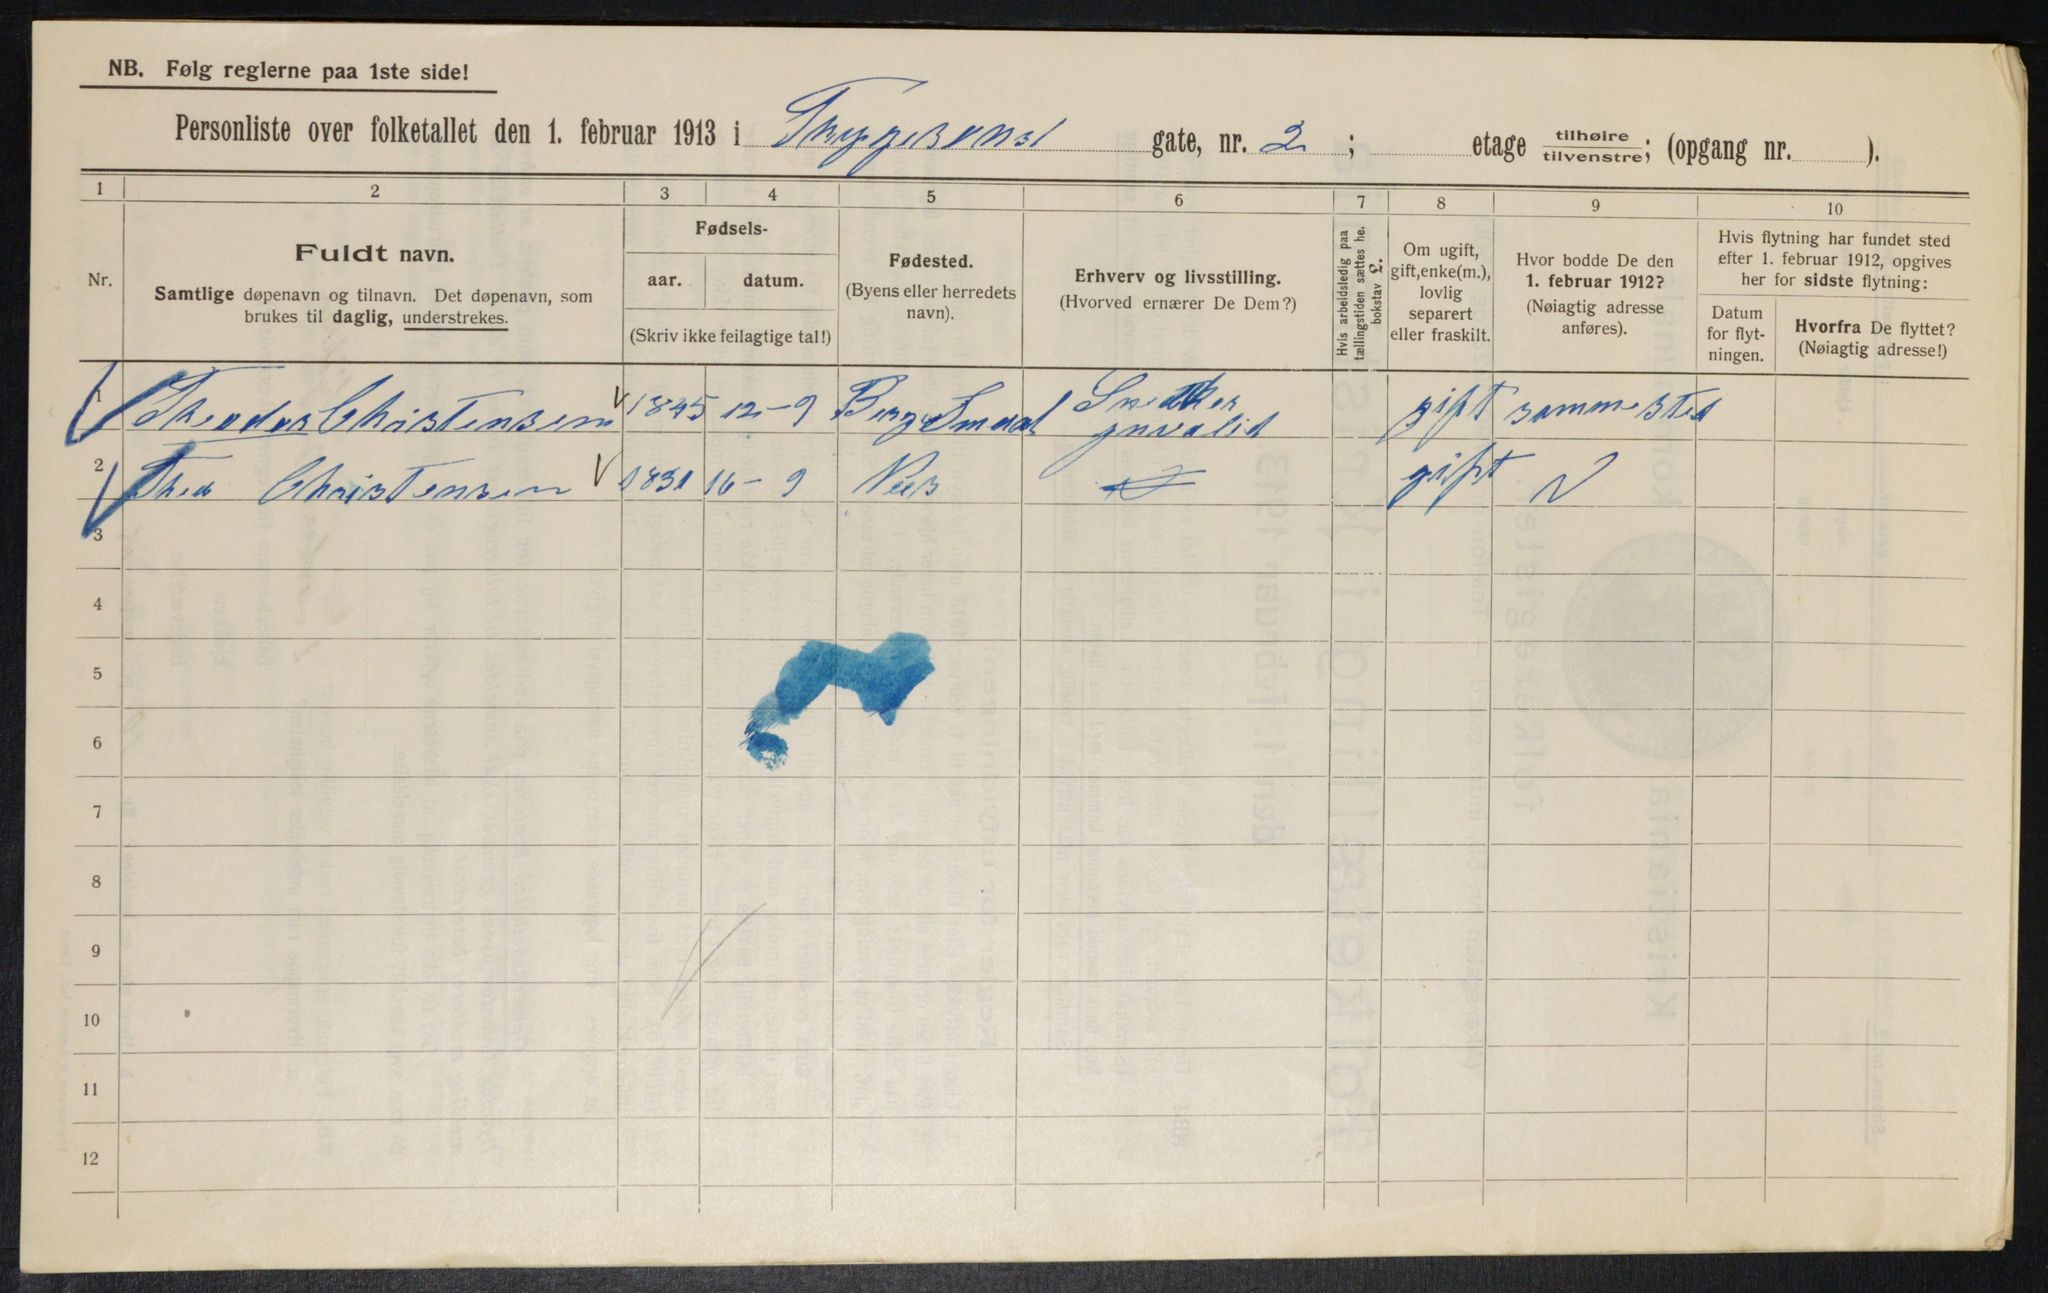 NB. Følg reglerne paa 1ste side!
Personliste over folketallet den 1. februar 1913 i gate, nr. 2 ; etage tilhøire tilvenstre; (opgang nr. ).
1 2 3 4 5 6 7 8 9 10
Nr.
Fuldt navn.
Samtlige døpenavn og tilnavn. Det døpenavn, som
brukes til daglig, understrekes.
Fødsels-
aar. datum.
(Skriv ikke feilagtige tal!)
Fødested.
(Byens eller herredets
navn).
Erhverv og livsstilling.
(Hvorved ernærer De Dem?)
Hvis arbeidsledig paa
tællingstiden sættes he.
bokstav L.
Om ugift,
gift, enke(m.),
lovlig
separert
eller fraskilt.
Hvor bodde De den
1. februar 1912?
(Nøiagtig adresse
anføres).
Hvis flytning har fundet sted
efter 1. februar 1912, opgives
her for sidste flytning:
Datum
for flyt-
ningen.
Hvorfra De flyttet?
(Nøiagtig adresse!)
1 Theodor Christensen 1845 12-9 Snedker gift sammested
invalid
2 Christensen 16-9 gift
3
4
5
6
7
8
9
10
11
12